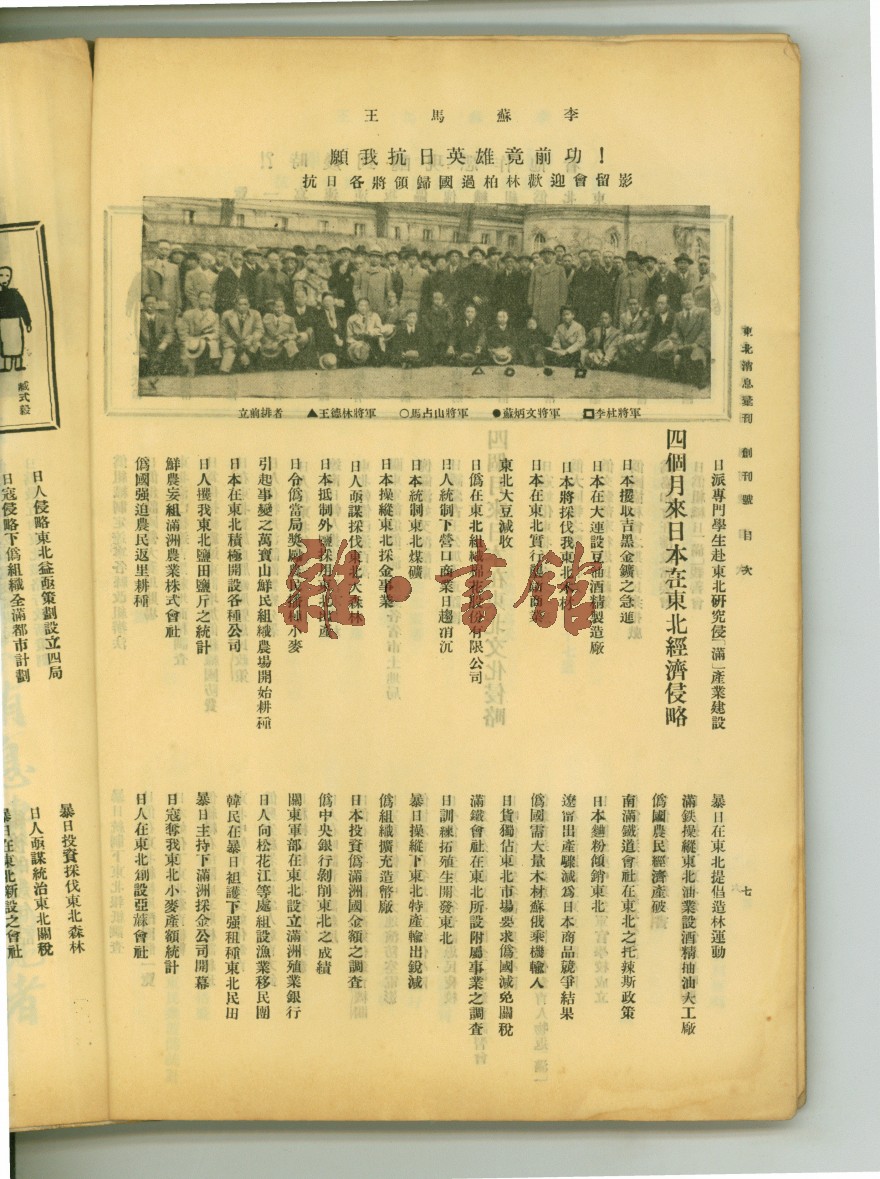 王馬蘇李
願我抗日英雄竟前功！
抗日各將領歸國過柏林歡迎會留影
立前排者 ▲王德林將軍 ○馬占山將軍 ●蘇炳文將軍 □李杜將軍
東北消息彙刊 創刊號 目次
七
日派專門學生赴東北研究侵「滿」產業建設
四個月來日本在東北經濟侵略
日本攫取吉黑金鑛之急進
日本在大連設豆油酒精製造廠
日本將採伐我東北木材
日本在東北實行
東北大豆減收
日僞在東北組織棉花股份有限公司
日人統制下營口商業日趨消沉
日本統制東北煤礦
日本操縱東北採金事業
日人亟謀採伐東北大森林
日本抵制外鹽採用東北
日令僞當局獎勵農民播種小麥
引起事變之萬寶山鮮民組織農場開始耕種
日本在東北積極開設各種公司
日人攫我東北鹽田鹽斤之統計
鮮農妄組滿洲農業株式會社
僞國强迫農民返里耕種
暴日在東北提倡造林運動
滿鉄操縱東北油業設酒精抽油大工廠
僞國農民經濟產破
南滿鐵道會社在東北之托辣斯政策
日本麵粉傾銷東北
遼甯出產驟減爲日本商品競爭結果
僞國需大量木材蘇俄乘機輸入
日貨獨佔東北市場要求僞國減免關稅
滿鐵會社在東北所設附屬事業之調查
日訓練拓殖生開發東北
暴日操縱下東北特產輸出銳減
僞組織擴充造幣廠
日本投資僞滿洲國金額之調查
僞中央銀行剝削東北之成績
關東軍部在東北設立滿洲殖業銀行
日人向松花江等處組設漁業移民團
韓民在暴日袒護下强租種東北民田
暴日主持下滿洲採金公司開幕
日寇奪我東北小麥產額統計
日人在東北創設亞麻會社
日人侵略東北益亟策劃設立四局
日寇侵略下僞組織全滿都市計劃
暴日投資採伐東北森林
日人亟謀統治東北關稅
暴日在東北新設之會社